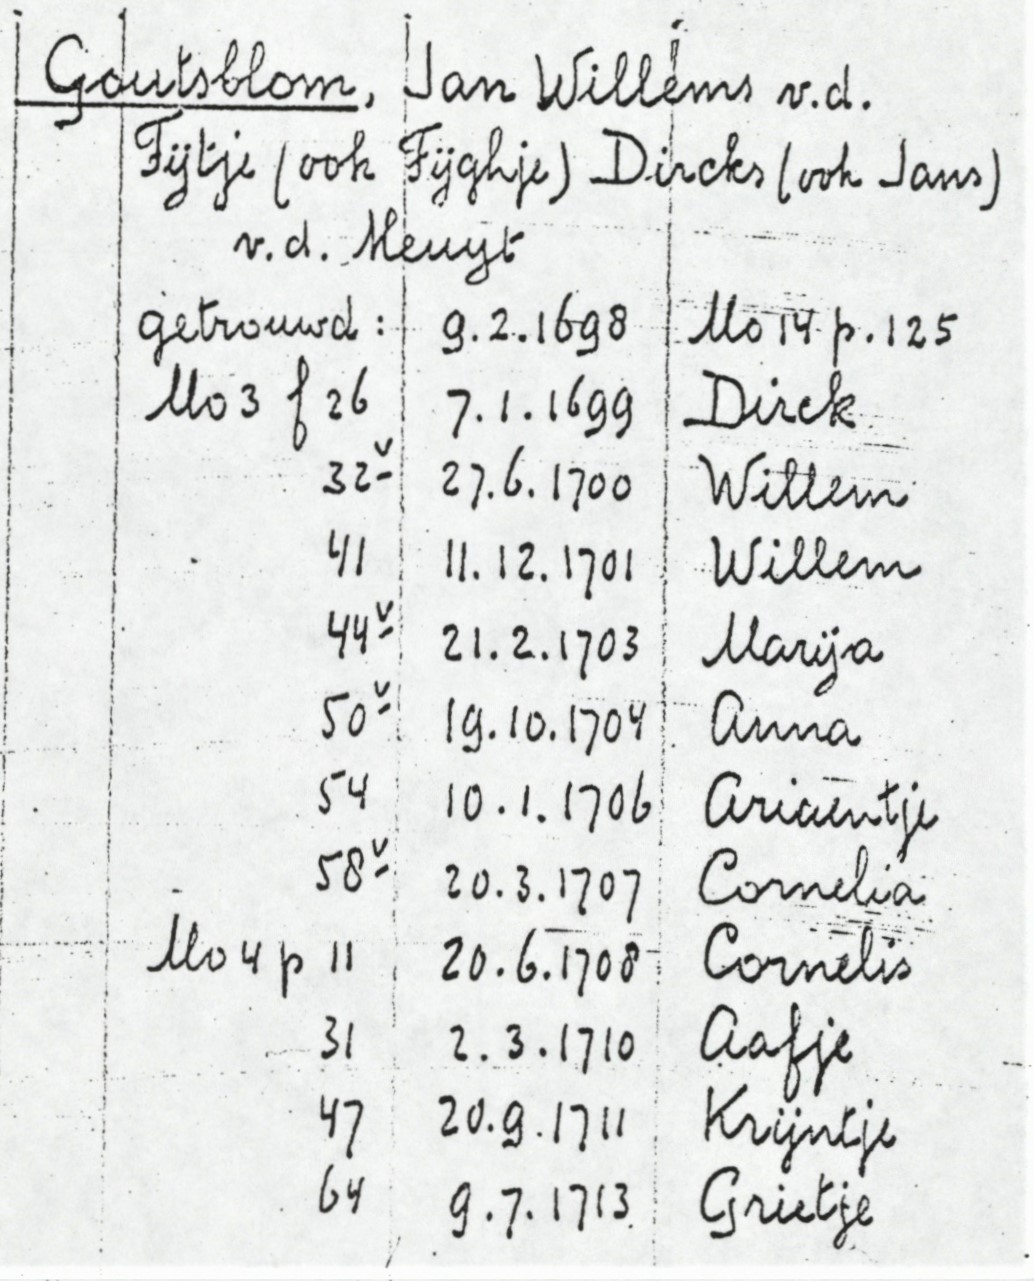 Goutsblom, Jan Willems v.d.
Fijtje (ook Fijghje) Dircks (ook Jans)
v.d. Meuyt
getrouwd: 9.2.1698 Mo 14 p. 125
Mo 3 f 26 7.1.1699 Dirck
32v 27.6.1700 Willem
41 11.12.1701 Willem
44v 21.2.1703 Marija
50v 19.10.1704 Anna
54 10.1.1706 Ariaentje
58v 20.3.1707 Cornelia
Mo 4 p 11 20.6.1708 Cornelis
31 2.3.1710 Aafje
47 20.9.1711 Krijntje
64 9.7.1713 Grietje